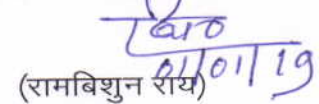 01/01/19
(रामबिशुन राय)